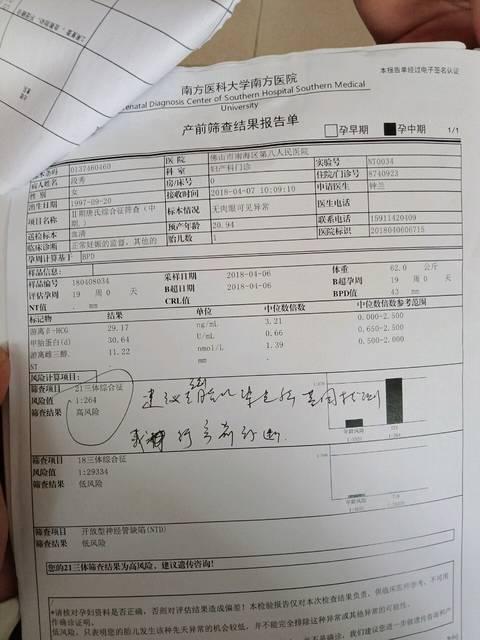 本报告单经过电子签名认证
南方医科大学南方医院
Prenatal Diagnosis Center of Southern Hospital Southern Medical
University
产前筛查结果报告单
孕早期 孕中期 1/1
条码 0137460460 医 院 佛山市南海区第八人民医院 实验号 NT0034
病人姓名 段秀 科 室 妇产科门诊 住院/门诊号 8740923
性别 女 房/床号 0 申请医生 钟兰
出生日期 1997-09-20 接收时间 2018-04-07 10:09:10 医生电话
项目名称 II期唐氏综合征筛查(中期) 标本情况 无肉眼可见异常 联系电话 15911420409
送检标本 血清 预产年龄 20.94 医院标识 2018040606715
临床诊断 正常妊娠的监督，其他的 胎儿数 1
孕周计算基于 BPD
样品信息:
样品编号 180408034 采样日期 2018-04-06 体重 62.0 公斤
评估孕周 19 周 0 天 B超日期 2018-04-06 B超孕周 19 周 0 天
NT值 - mm CRL值 BPD值 43 mm
标记物 结果 单位 中位数倍数 中位数倍数参考范围
游离β-HCG 29.17 ng/mL 3.21 0.000-2.500
甲胎蛋白(d) 30.64 U/mL 0.66 0.650-2.500
游离雌三醇. 11.22 nmol/L 1.39 0.500-2.000
NT - mm -
风险计算项目:
筛查项目 21三体综合征
风险值: 1:264
筛查结果 高风险
建议
产前诊断
年龄风险 T21
筛查项目 18三体综合征
风险值: 1:29334
筛查结果 低风险
年龄风险
筛查项目 开放型神经管缺陷(NTD)
筛查结果 低风险
您的21三体筛查结果为高风险，建议遗传咨询!
*请核对孕妇资料是否正确，否则对评估结果造成偏差! 本检验报告仅对本次检查结果负责，供临床医师参考，不可用
作确诊证明。
低风险，只表明您的胎儿发生该种先天异常的机会较低，并不能完全排除这种异常或其他异常的可能性。
我们建议您进一步做遗传咨询和产